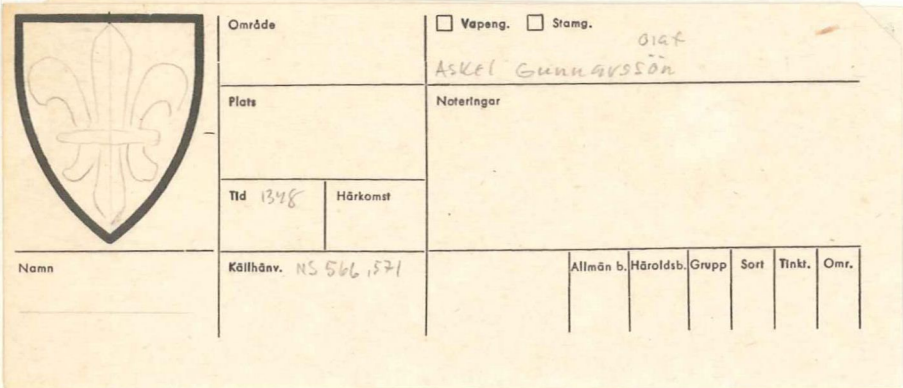 Område
Vapeng. Stamg.
Olaf
Askel Gunnarssön
Plats
Noteringar
Tid 1348
Härkomst
Namn
Källhänv. NS 566, 571
Allmän b. Häroldsb. Grupp Sort Tinkt. Omr.